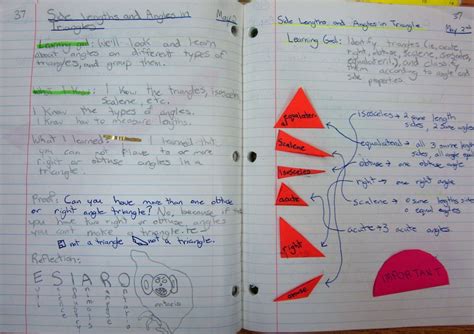 37 Side Lengths and Angles in Triangles May
Learning Goal: We'll look and learn
about angles on different types of
triangles, and group them.
What I Know: I know the triangles, isosceles,
scalene, etc.
I know the types of angles.
I know how to measure lengths.
What I learned: I learned that
you can not have to or more
right or obtuse angles in a
triangle.
Proof: Can you have more than one obtuse
or right angle triangle? No, because if
you have two right or obtuse angles
you can't make a triangle.
not a triangle. not a triangle.
Reflection:
E S I A R O
Side Lengths and Angles in Triangle 37
May
Learning Goal: Identify triangles (ex. acute,
right, obtuse, scalene, isosceles,
equilateral), and classify
them according to angle and
side properties
isosceles → 2 same length
sides, 2 same angles
equilateral → all 3 same
sides, all angle
obtuse → one obtuse angle
right → one right angle
scalene → no same lengths sides
0 equal angles
acute → 3 acute angles
scalene
isosceles
acute
right
obtuse
IMPORTANT